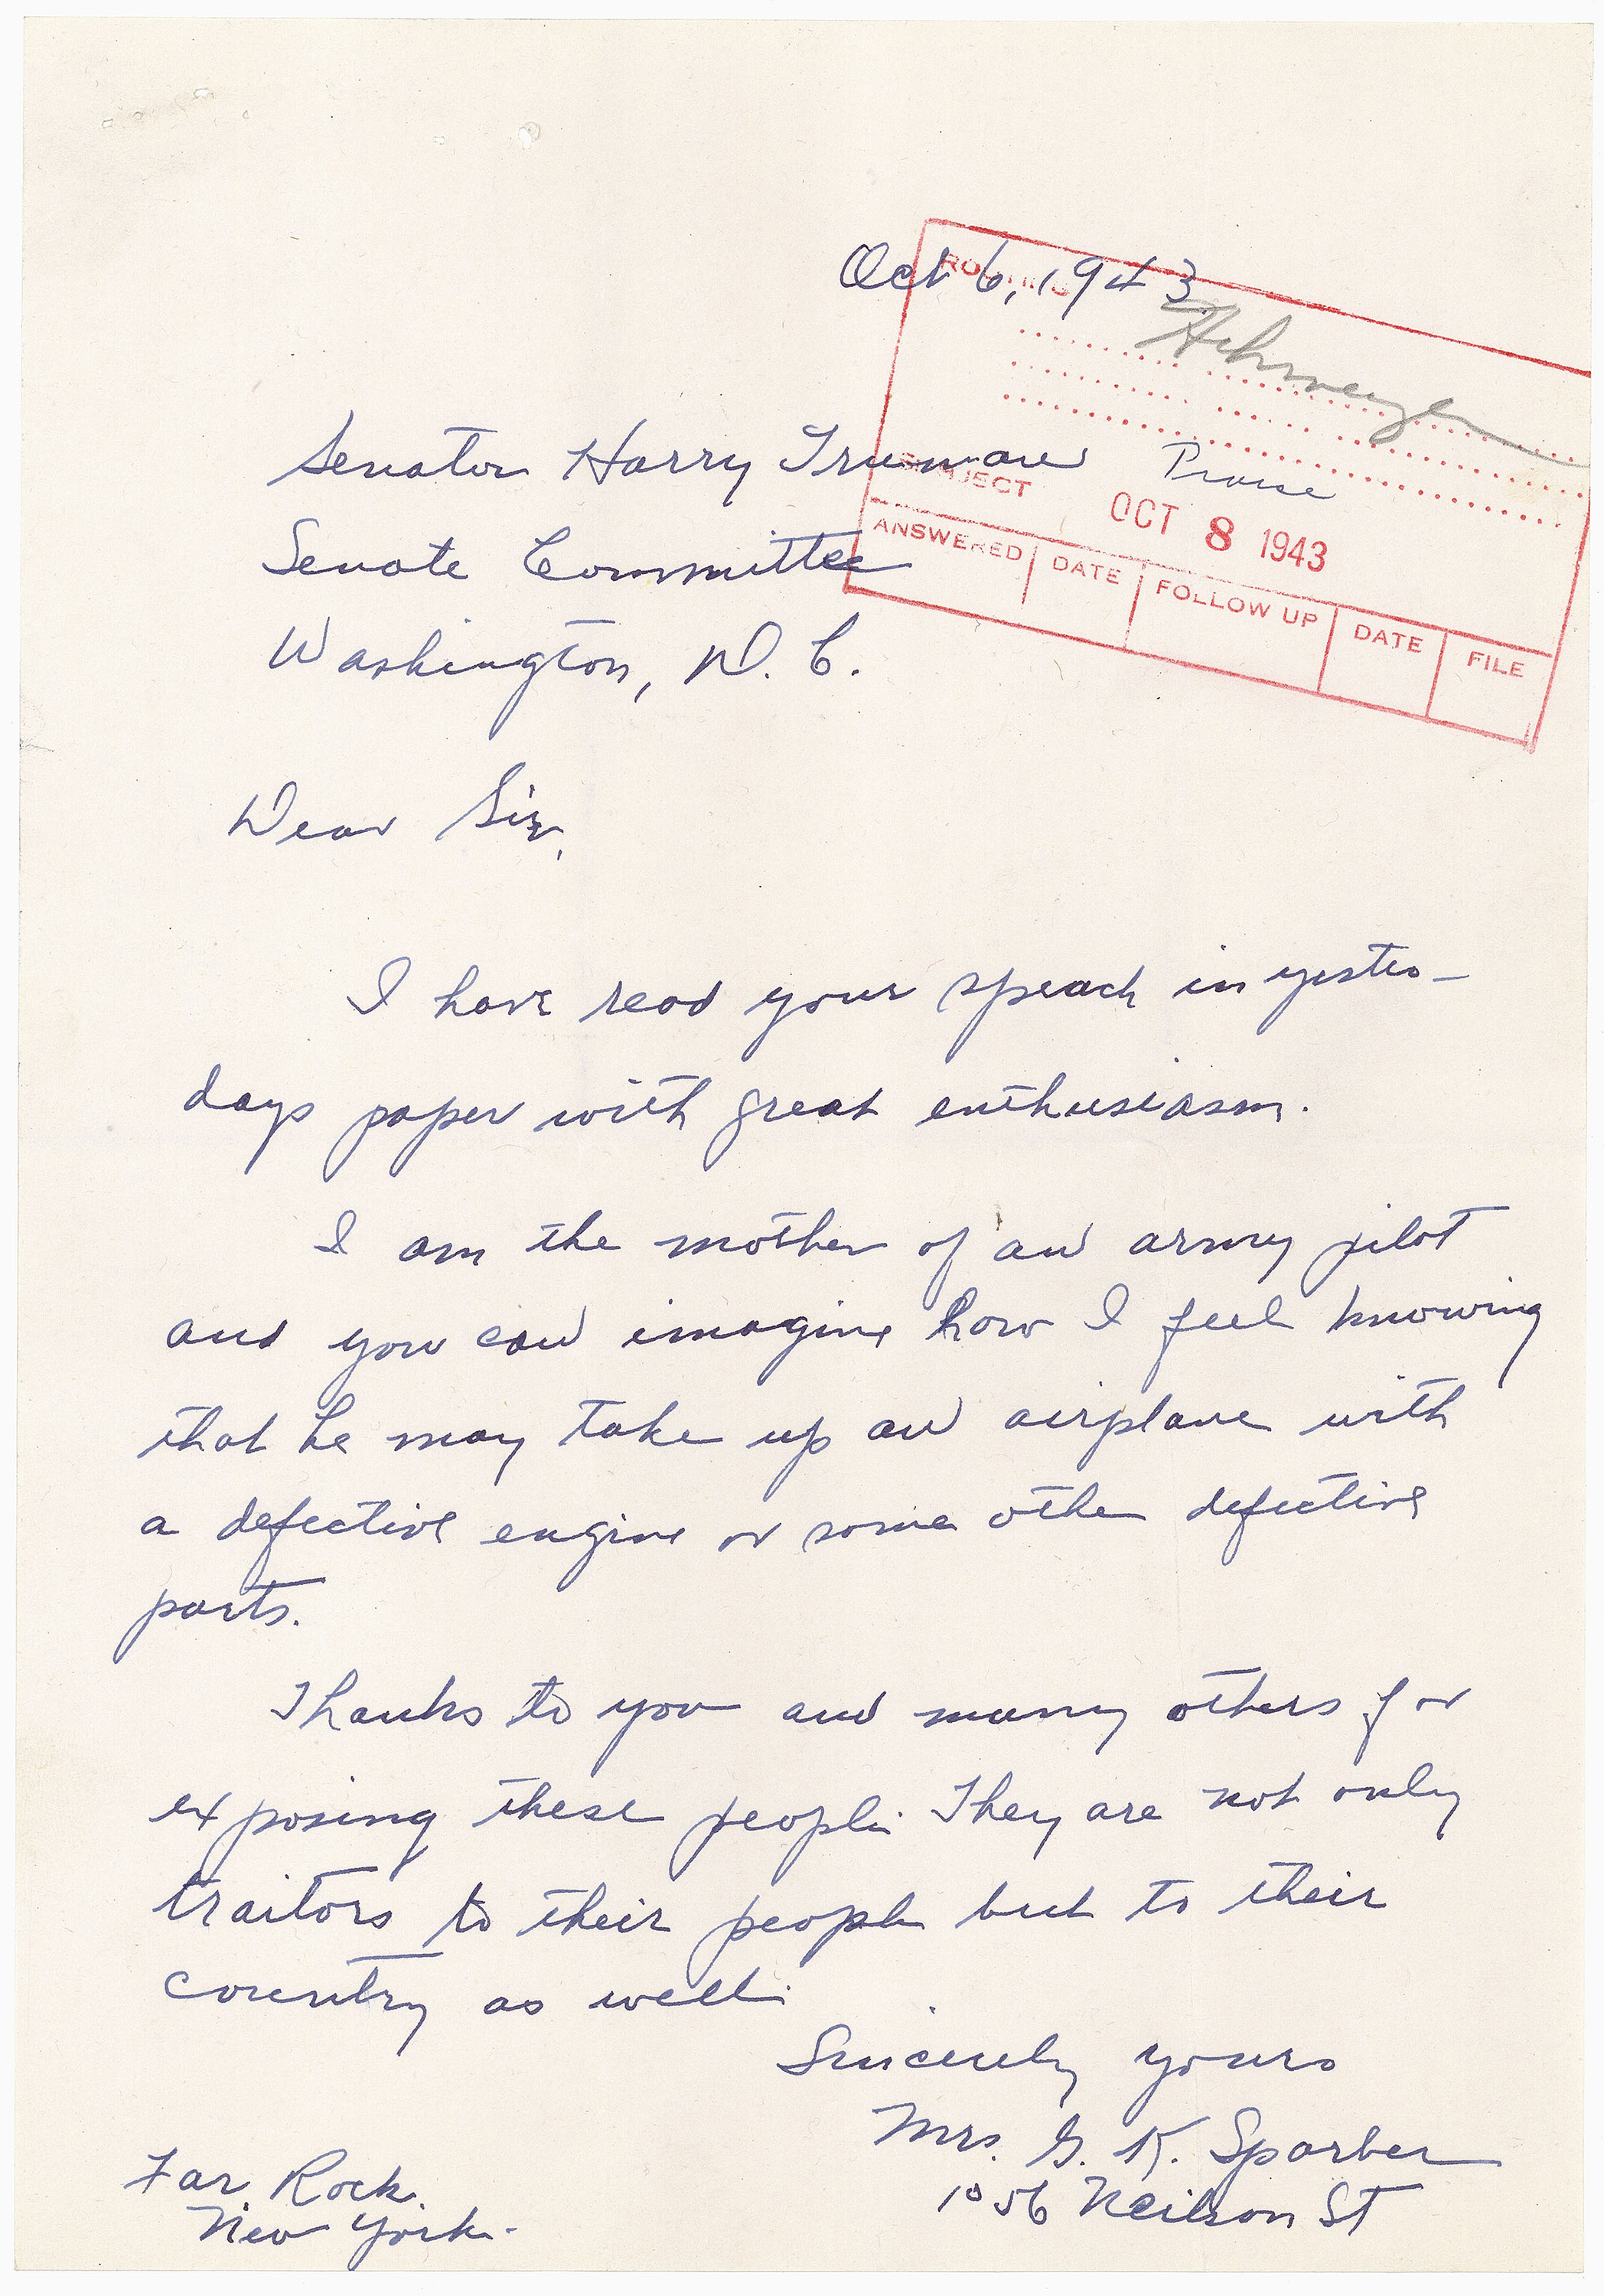 Oct 6, 1943
ROUTING
Senator Harry Truman
Praise
SUBJECT
OCT 8 1943
Senate Committee
ANSWERED DATE FOLLOW UP DATE FILE
Washington, D. C.
Dear Sir,
I have read your speach in yester-
days paper with great enthusiasm.
I am the mother of an army pilot
and you can imagine how I feel knowing
that he may take up an airplane with
a defective engine or some other defective
parts.
Thanks to you and many others for
exposing these people. They are not only
traitors to their people but to their
country as well.
Sincerely yours
Mrs. G. K. Sparber
1056 Neilson St
Far Rock.
New York.